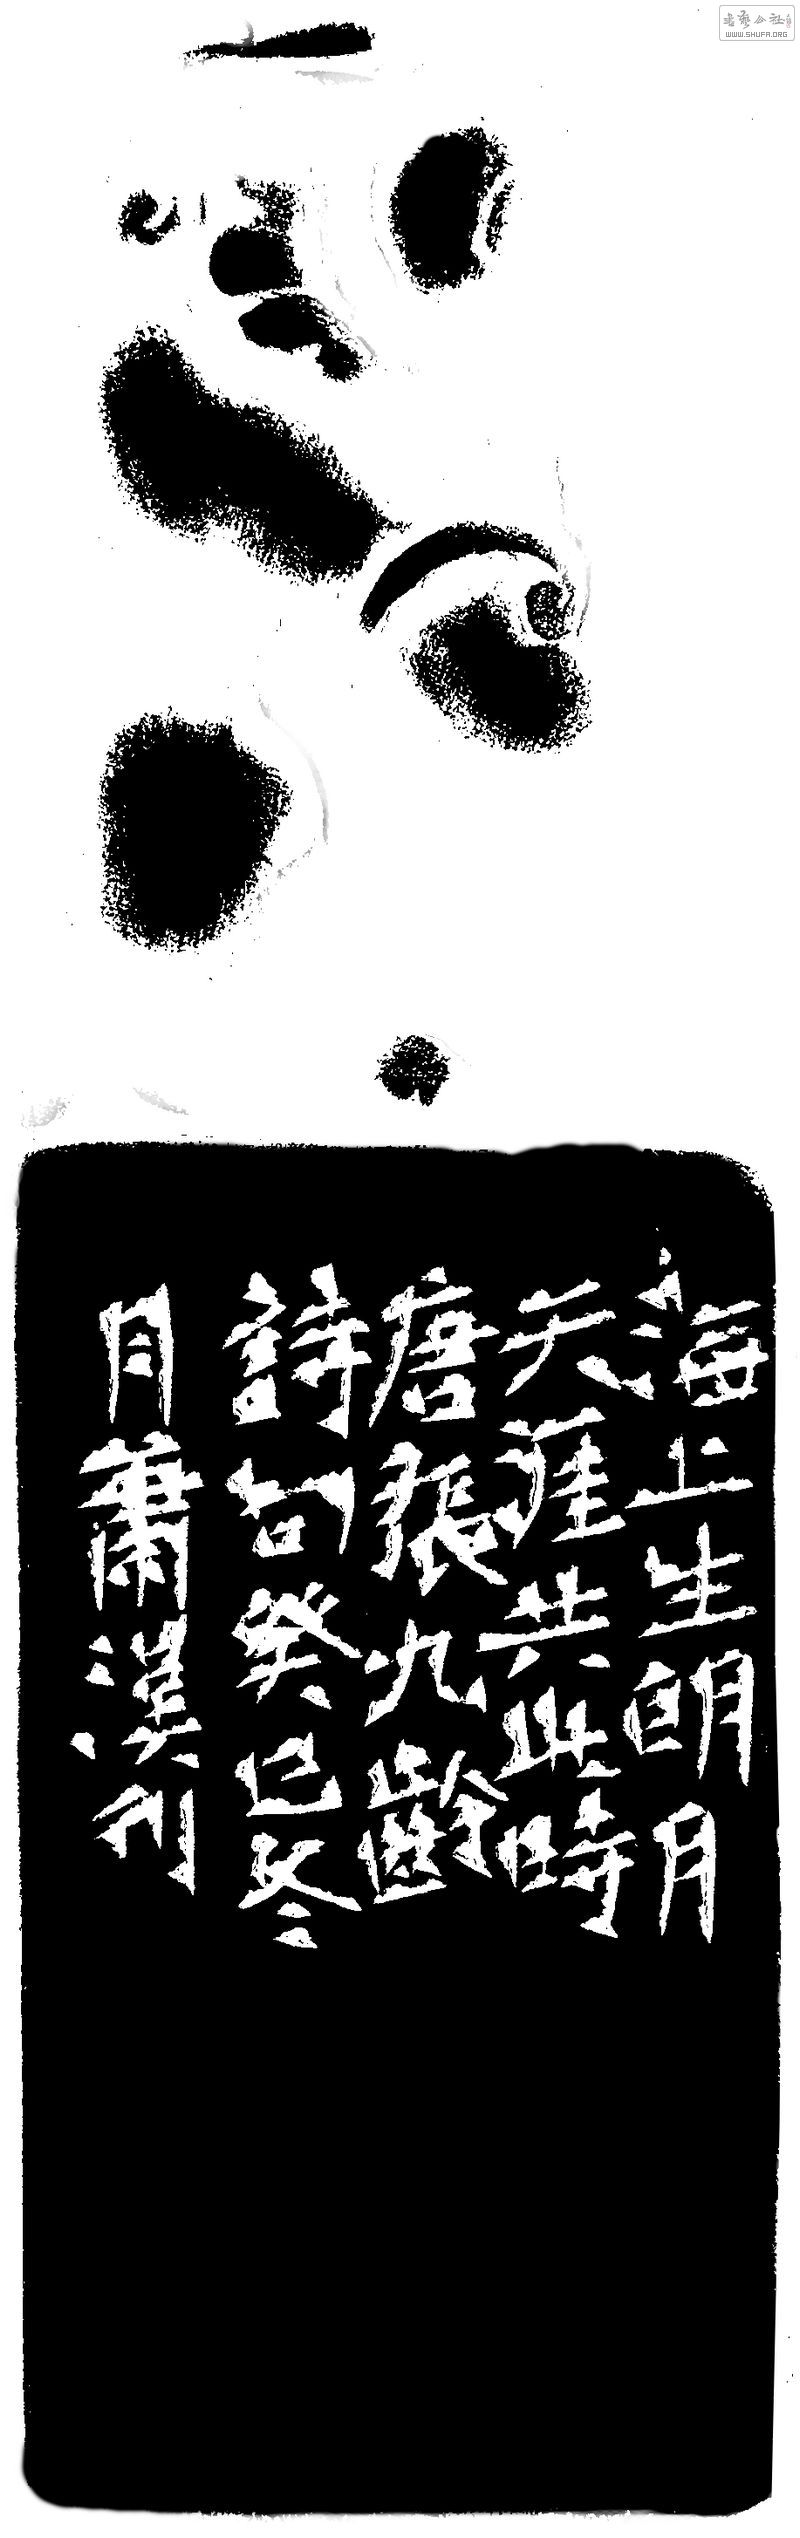 海上生明月
天涯共此時
唐張九齡
詩句癸巳冬
月蕭漢刊
WWW.SHUFA.ORG